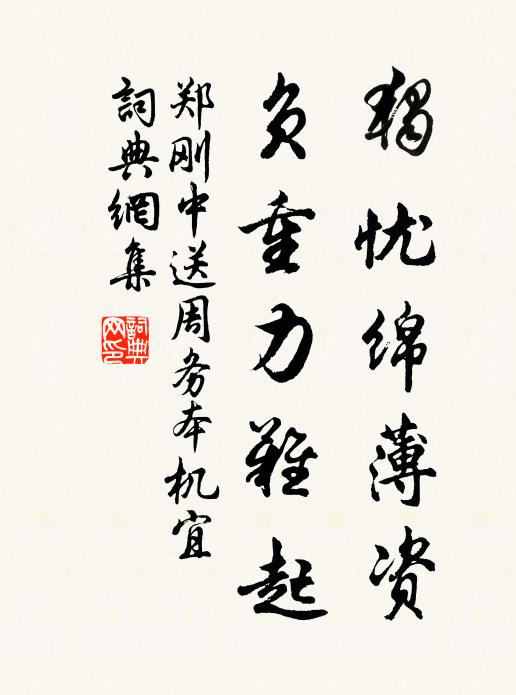 獨忧绵薄资
负重力难起
郑刚中送周务本机宜
詞典網集
詞典网印